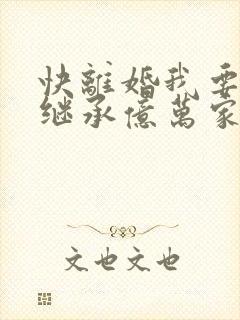 快離婚我要
继承億萬家
文也文也